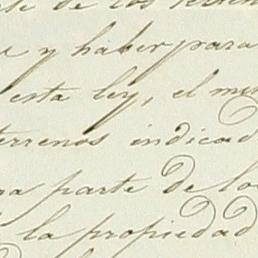 de los terren
y haber para
esta ley, el min
terrenos indicad
na parte de lo
la propiedad